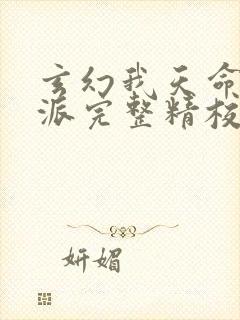 玄幻我天命
派完整精校
妍媚